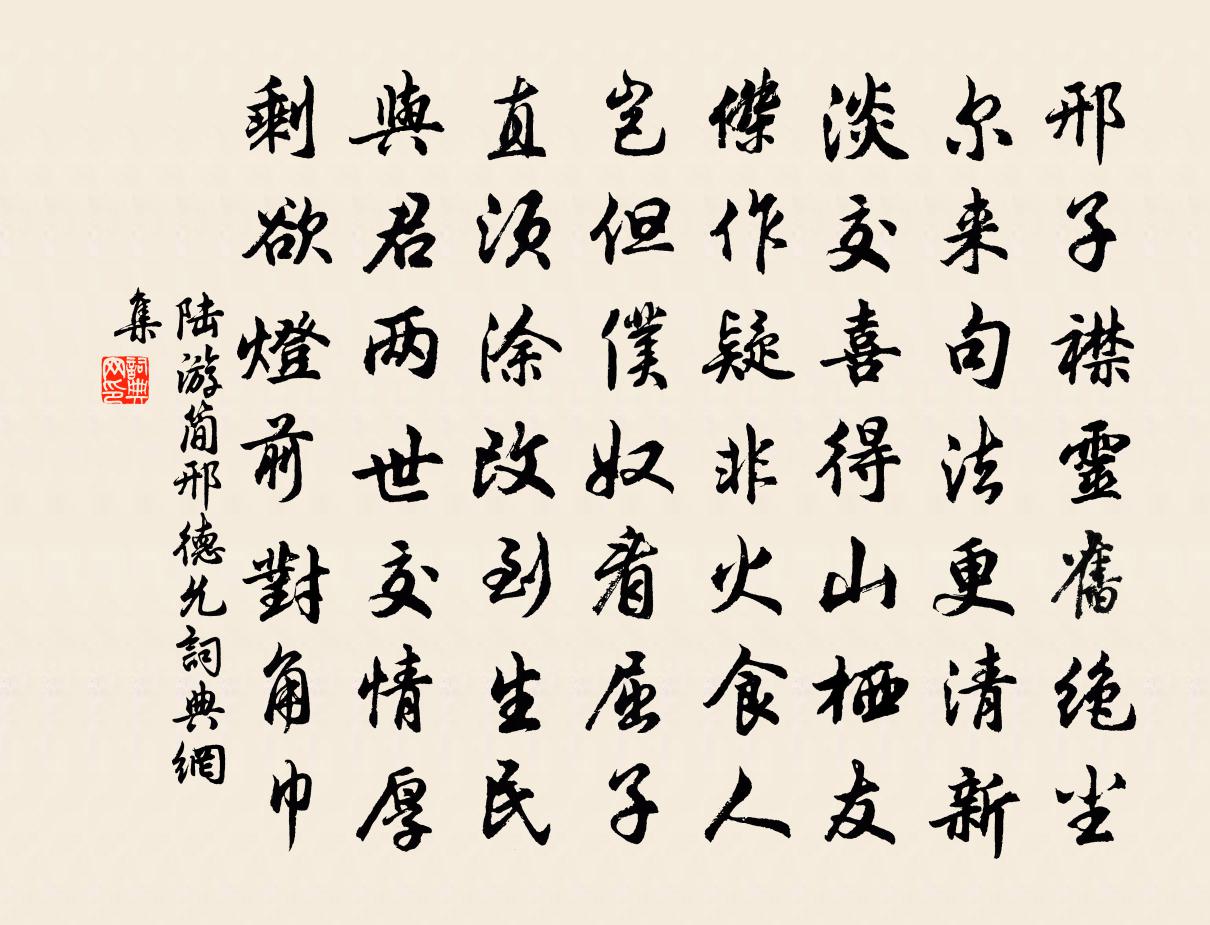 邢子襟靈舊絶尘
尔来句法更清新
淡交喜得山栖友
傑作疑非火食人
岂但僕奴看屈子
直须涂改到生民
與君两世交情厚
剩欲燈前對角巾
陆游简邢德允詞典網
集
詞典
网印